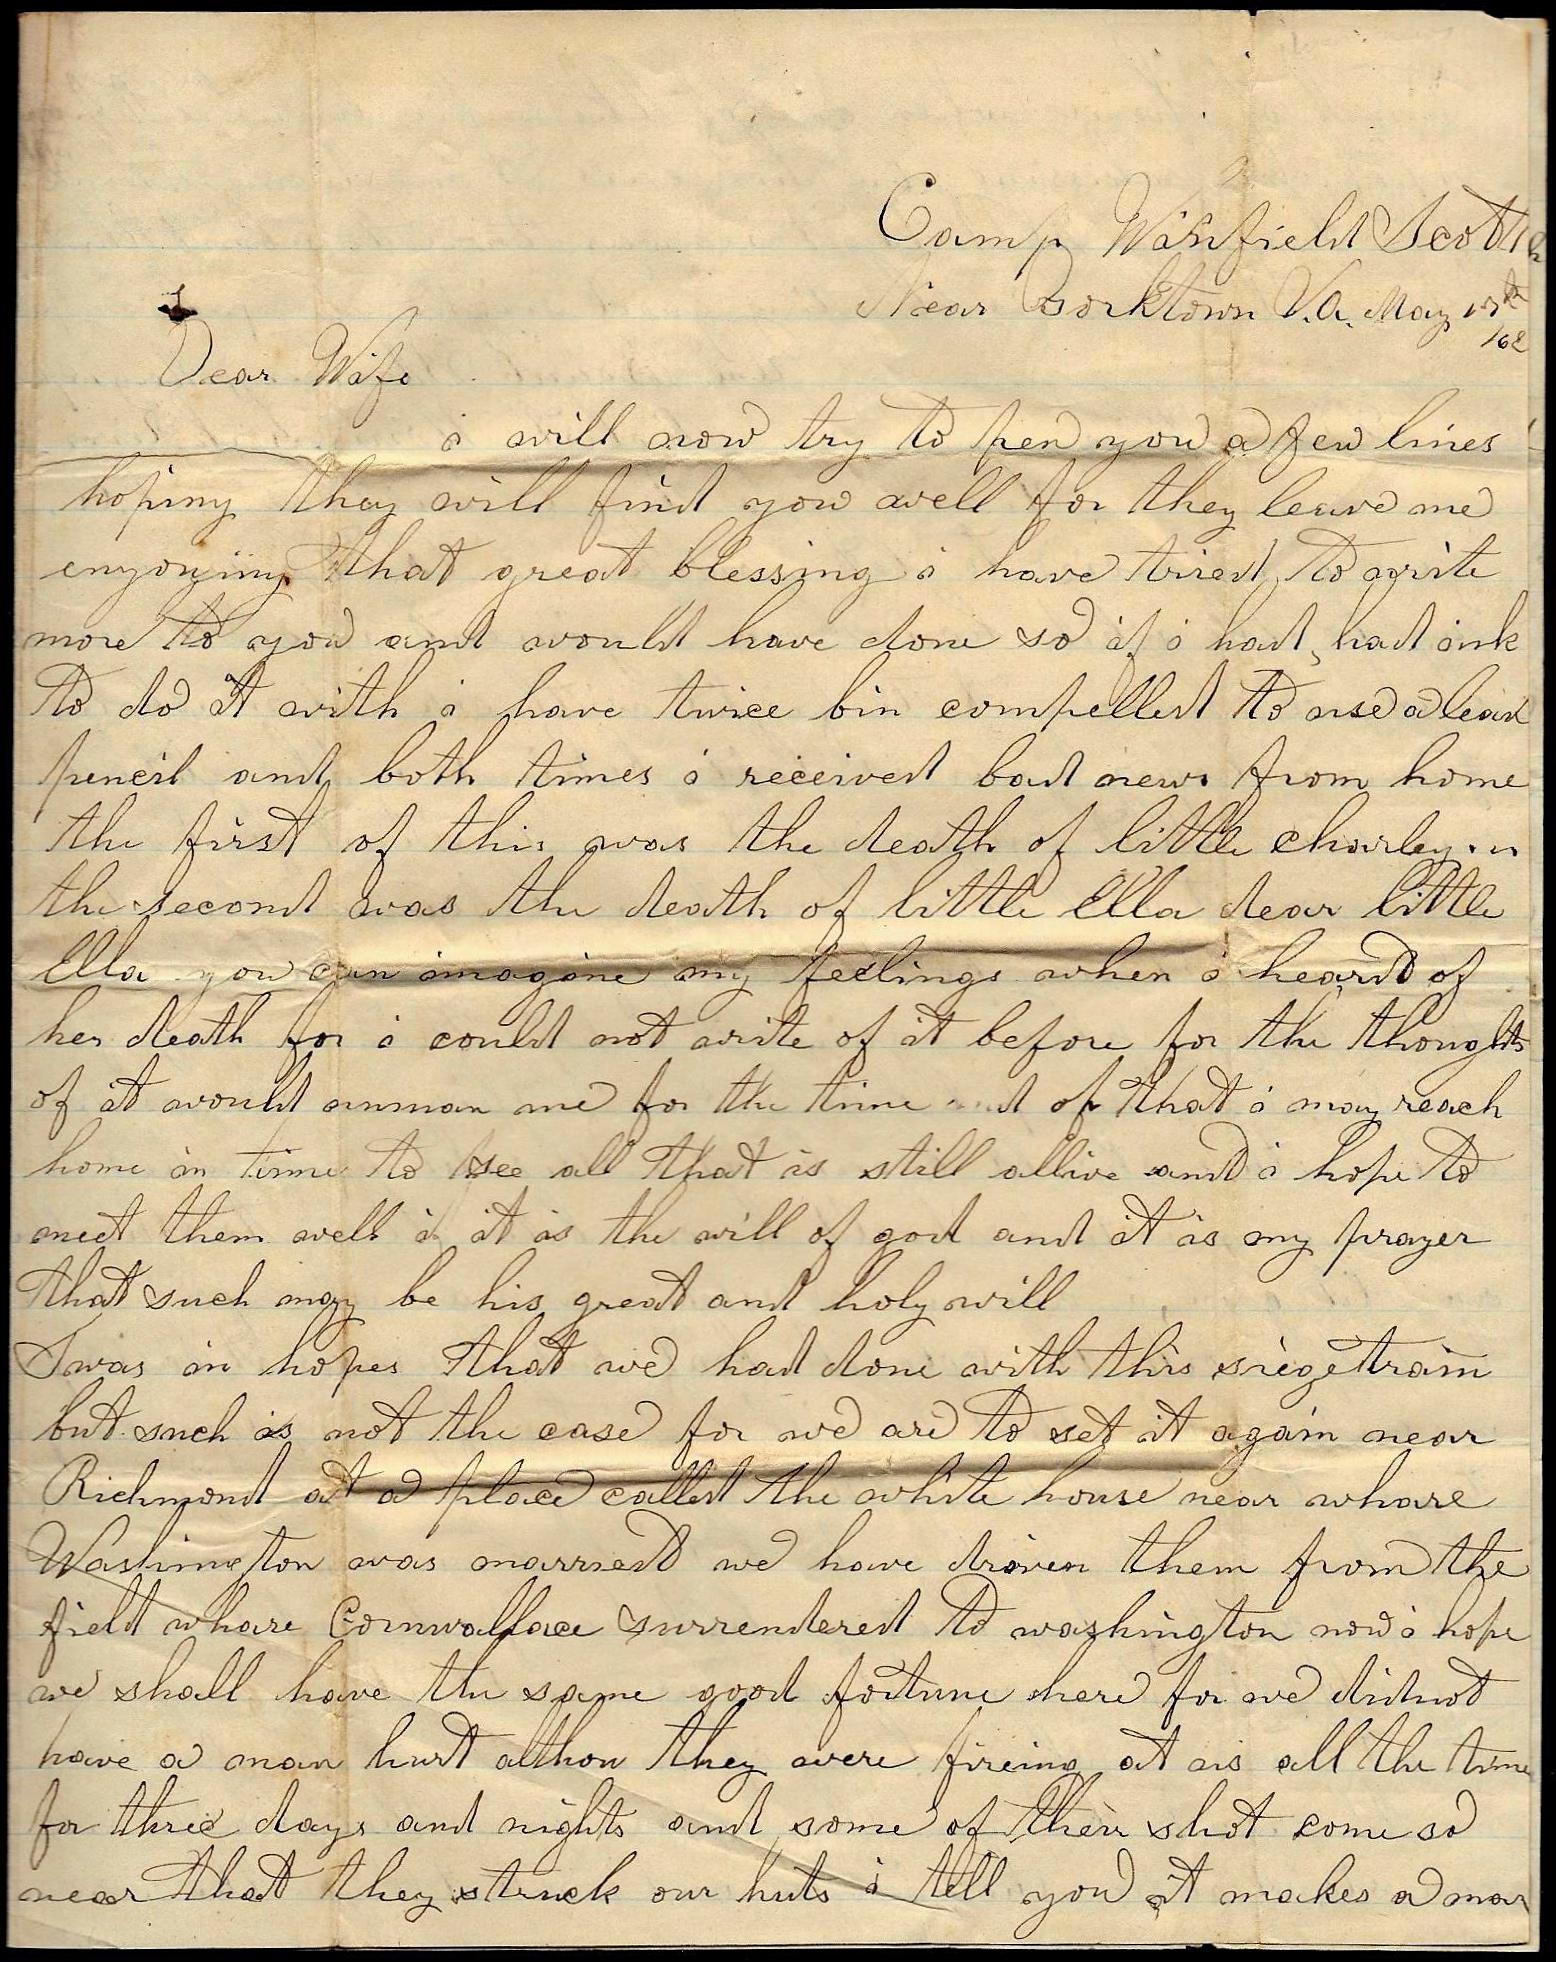 Camp Winfield Scott
Near Yorktown V.a. May
/62
Dear Wife
i will now try to pen you a few lines
hoping they will find you well for they leave me
enyoyiing that great blessing i have tired to write
more to you and would have done so if i had had ink
to do it with i have twice bin compelled to use a lead
pencil and both times i received bad news from home
the first of this was the death of little charley
the second was the death of little Ella dear little
Ella you can imagine my feelings when i heard of
her death for i could not write of it before for the thoughts
of it would unman me for the time of that i may reach
home in time to see all that is still allive and i hope to
meet them well if it is the will of god and it is my prayer
that such may be his great and holy will
I was in hopes that we had done with this siege train
but such is not the case for we are to set it again near
Richmond at a place called the white house near whare
Washington was married we have driven them from the
field whare Cornwallace surrendered to washington now i hope
we shall have the same good fortune here for we did not
have a man hurt althou they were fireing at us all the time
for three days and nights and some of their shot come so
near that they struck our huts i tell you it makes a man